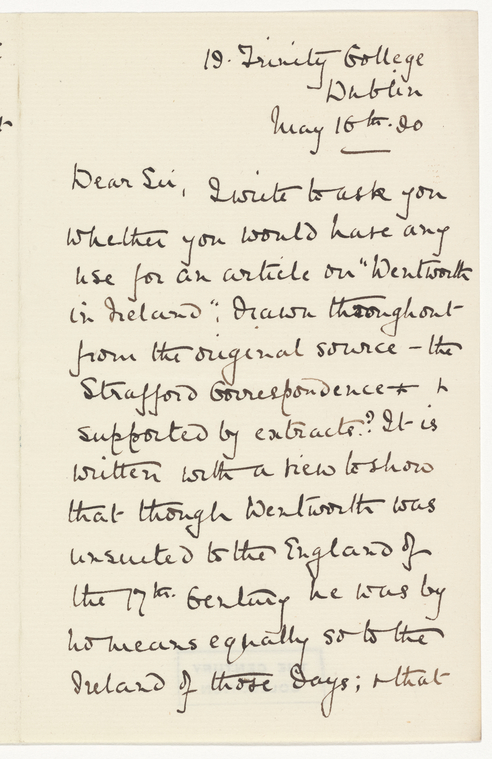 19. Trinity College
Dublin
May 16th. 90
Dear Sir, I write to ask you
whether you would have any
use for an article on "Wentworth
in Ireland"; drawn throughout
from the original source - the
Strafford Correspondence &
supported by extracts? It is
written with a view to show
that though Wentworth was
unsuited to the England of
the 17th. Century he was by
no means equally so to the
Ireland of those days; & that